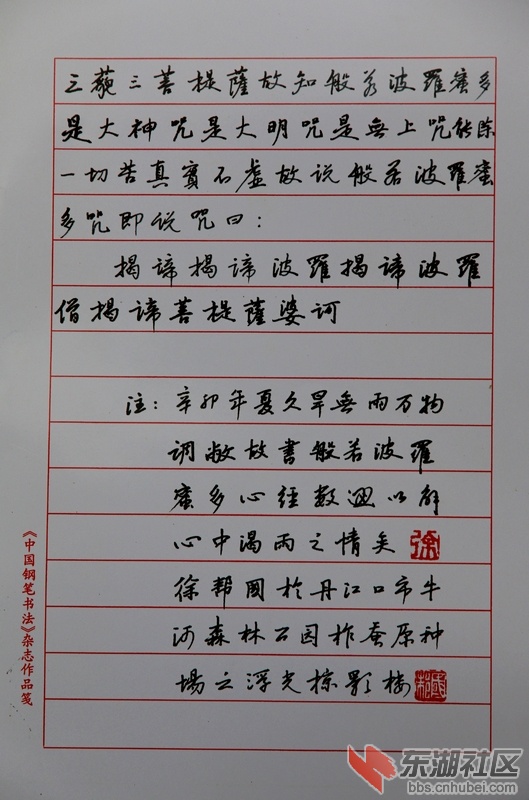 三藐三菩提薩故知般若波羅蜜多
是大神咒是大明咒是無上咒能除
一切苦真實不虛故说般若波羅蜜
多咒即说咒曰：
揭諦揭諦波羅揭諦波羅
僧揭諦菩提薩婆诃
注：辛卯年夏久旱無雨万物
调敝故書般若波羅
蜜多心經數遍以解
心中渴雨之情矣
徐帮國於丹江口市牛
河森林公园柞蚕原种
場之浮光掠影楼
《中国钢笔书法》杂志作品笺
东湖社区
bbs.cnhubei.com